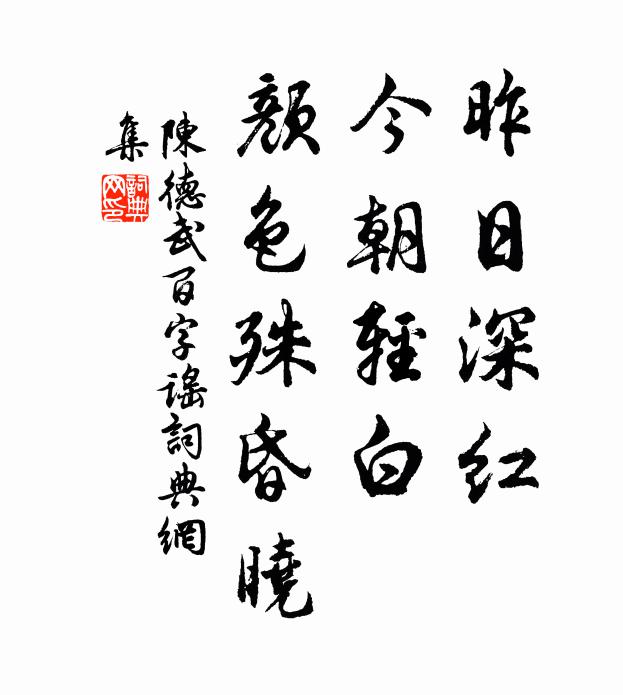 昨日深红
今朝輕白
顔色殊昏曉
陳德武百字謠詞典網
集
詞典
网印